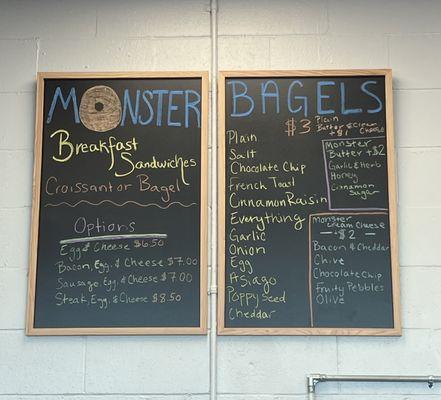 MONSTER
Breakfast
Sandwiches
Croissant or Bagel
Options
Egg & Cheese $6.50
Bacon, Egg, & Cheese $7.00
Sausage, Egg, & Cheese $7.00
Steak, Egg, & Cheese $8.50
BAGELS
$3 Plain
Butter & Cream Cheese
+$1
Plain
Salt
Chocolate Chip
French Toast
Cinnamon Raisin
Everything
Garlic
Onion
Egg
Asiago
Poppy seed
Cheddar
Monster
Butter +$2
Garlic & Herb
Honey
Cinnamon
Sugar
Monster
Cream Cheese
+$2
Bacon & Cheddar
Chive
Chocolate Chip
Fruity Pebbles
Olive